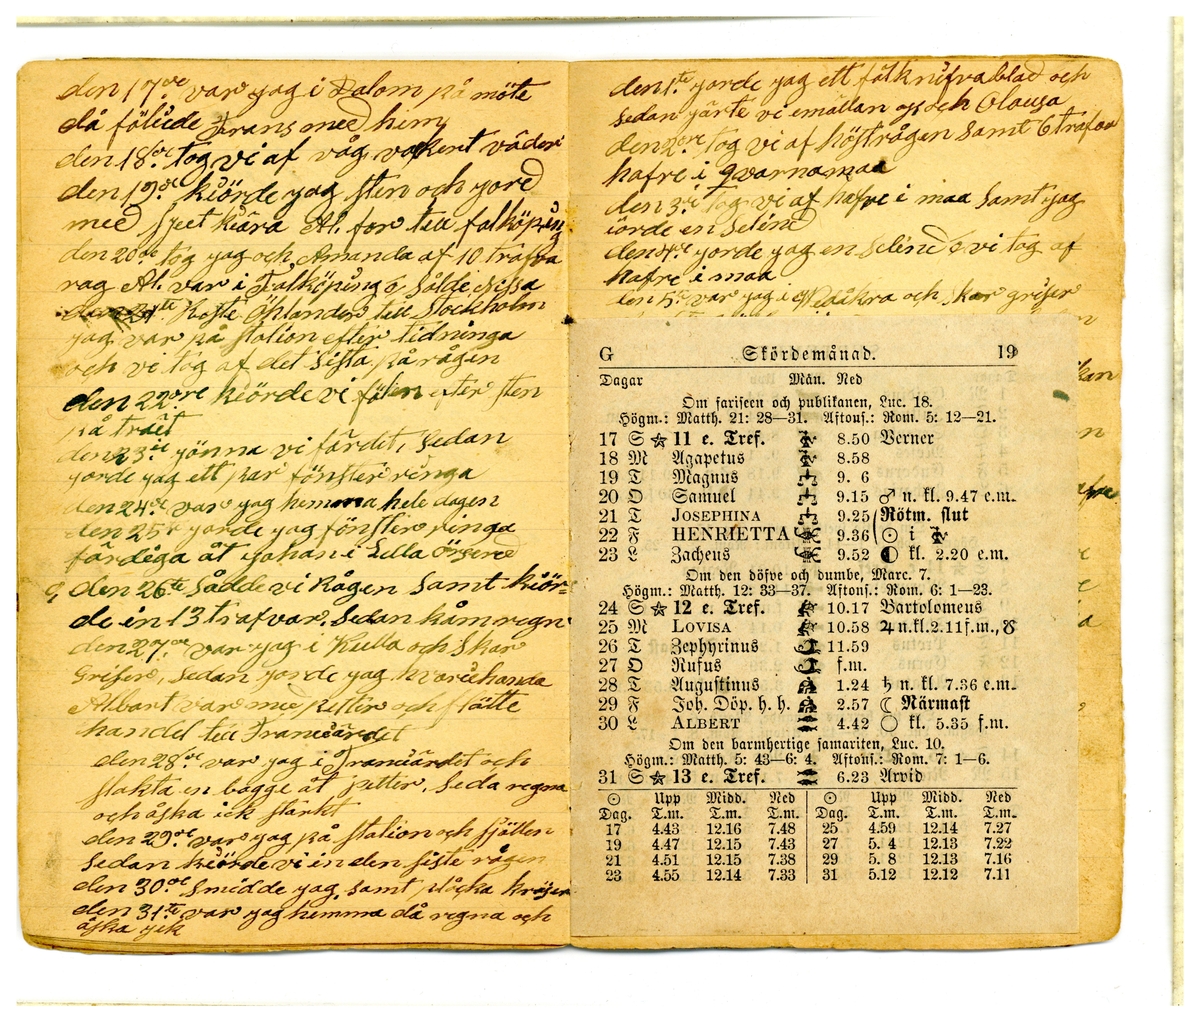 den 17de var yag i Dalom på möte
då följde Frans med him
den 18de tog vi af våg vakert väder
den 19de kiörde yag sten och yord
med speet kiära Al. for till falköping
den 20de tog yag och Amanda af 10 trafva
rag Al. var i Falköping o sålde
Öhlander till Stockholm
yag var på station efter tidninga
och vi tog af det sista på rågen
den 22dre kiörde vi efter sten
på
den 23je jönna vi färdet, sedan
yorde yag ett par fönster ringa
den 24de var yag hemma hele dagen
den 25te yorde yag fönster ringa
färdiga åt Johan i Lilla
den 26te sådde vi Rågen samt kiör=
de in 13 trafvar. sedan kåm regn
den 27de var yag i Kulla och skar
Griser, sedan yorde yag hvariehanda
Albart var med petter och slätte
handel till
den 28de var yag i och
slakta en bagge åt petter, seda regna
och åska
den 29de var yag på station och fjällen
sedan kiörde vi in den siste rågen
den 30de smidde yag samt plåcka
den 31te var yag hemma då regna och
åska gik
den 1te yorde yag ett fålknifvablad och
sedan järte vi emällan oss och Olausa
den 2dre tog vi af höstrågen samt 6 trafvar
hafre i qvarnamaa
den 3je tog vi af hafre i maa samt yag
iörde en Selind
den 4de yorde yag en Selind o vi tog af
hafre i maa
den 5te var yag i och skar griser
G Skördemånad. 19
Dagar Mån. Ned
Om fariseen och publikanen, Luc. 18.
Högm.: Matth. 21: 28—31. Aftons.: Rom. 5: 12—21.
17 S ☆ 11 e. Tref. 8.50 Verner
18 M Agapetus 8.58
19 T Magnus 9. 6
20 O Samuel 9.15 ♂ n. kl. 9.47 e.m.
21 T JOSEPHINA 9.25 Rötm. slut
22 F HENRIETTA 9.36 ☉ i ♍
23 L Zacheus 9.52 ◐ kl. 2.20 e.m.
Om den döfve och dumbe, Marc. 7.
Högm.: Matth. 12: 33—37. Aftons.: Rom. 6: 1—23.
24 S ☆ 12 e. Tref. 10.17 Bartolomeus
25 M LOVISA 10.58 ♃ n. kl. 2.11 f.m., ☋
26 T Zephyrinus 11.59
27 O Rufus f.m.
28 T Augustinus 1.24 ♄ n. kl. 7.36 e.m.
29 F Joh. Döp. h. h. 2.57 ☾ Närmast
30 L ALBERT 4.42 ○ kl. 5.35 f.m.
Om den barmhertige samariten, Luc. 10.
Högm.: Matth. 5: 43—6: 4. Aftons.: Rom. 7: 1—6.
31 S ☆ 13 e. Tref. 6.23 Arvid
☉ Upp Midd. Ned ☉ Upp Midd. Ned
Dag. T.m. T.m. T.m. Dag. T.m. T.m. T.m.
17 4.43 12.16 7.48 25 4.59 12.14 7.27
19 4.47 12.15 7.43 27 5. 4 12.13 7.22
21 4.51 12.15 7.38 29 5. 8 12.13 7.16
23 4.55 12.14 7.33 31 5.12 12.12 7.11